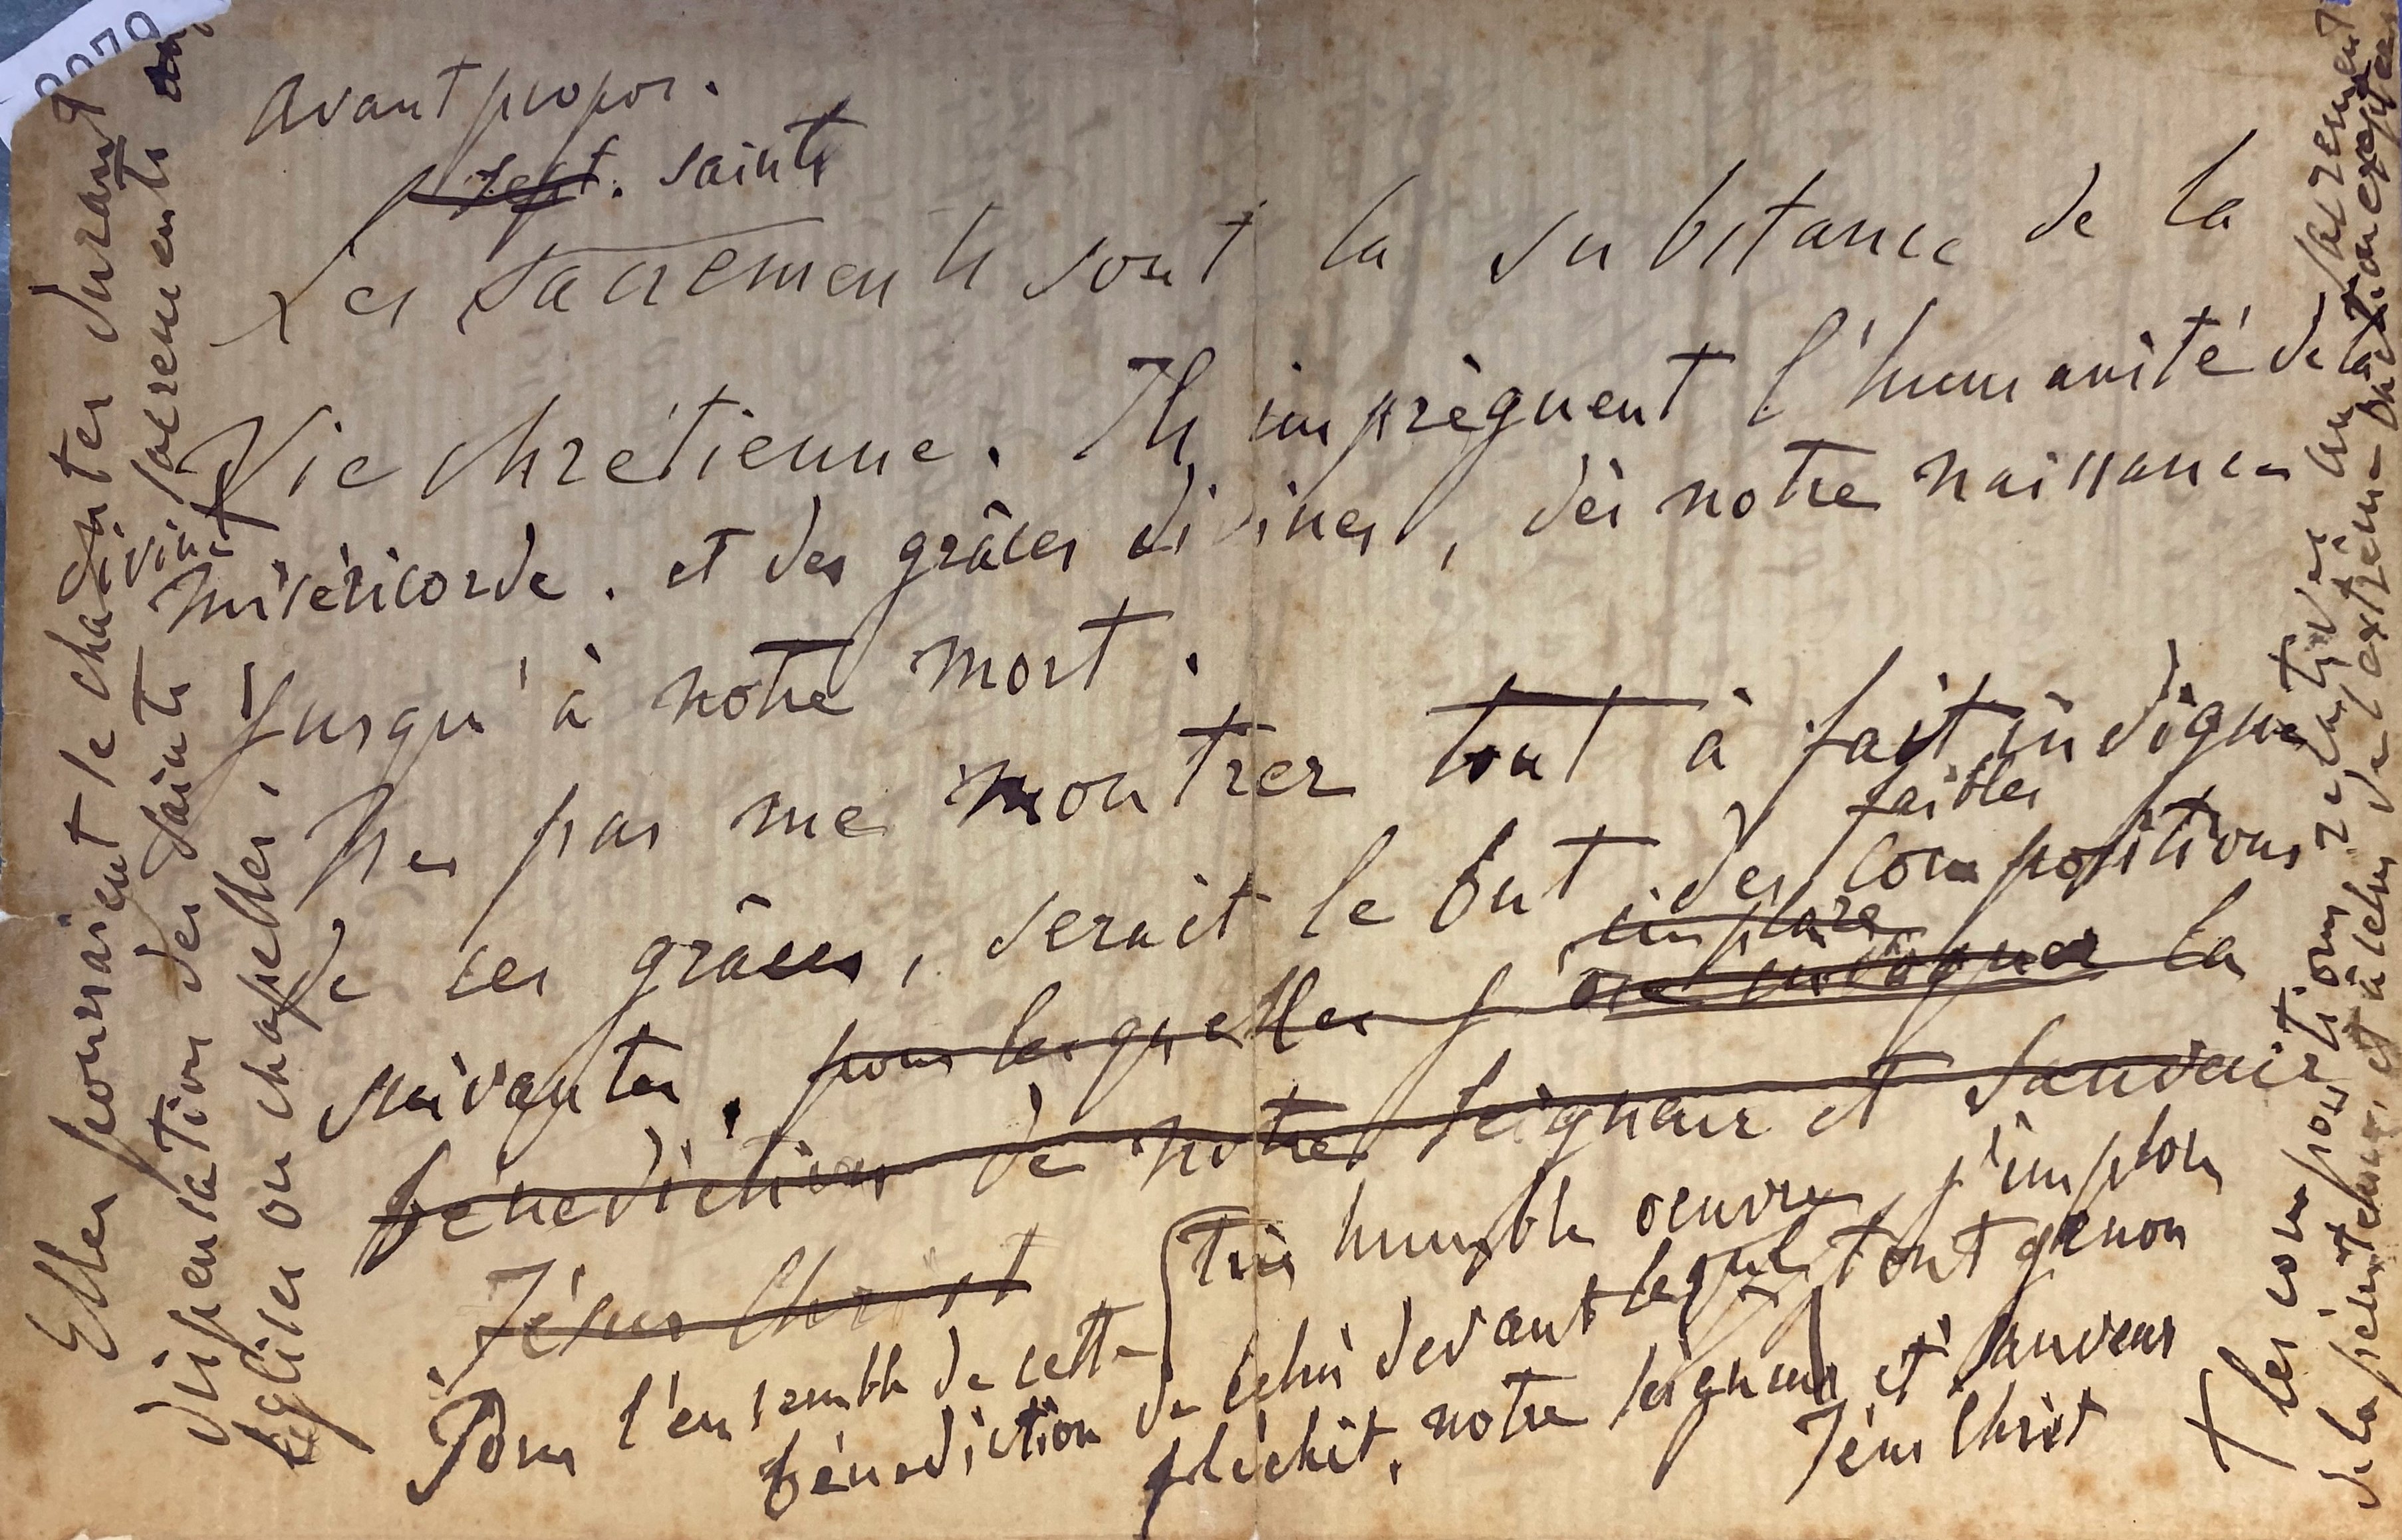 Avant propos.
sept. saints
Les Sacrements sont la substance de la
Vie chrétienne. Ils imprègnent l'humanité de la
miséricorde. et des grâces divines, dès notre naissance
Jusqu'à notre mort.
Ne pas me montrer tout à fait indigne
faibles
de ces grâces, serait le but des compositions
implore
suivantes. pour lesquelles j'ose invoquer la
bénédiction de notre Seigneur et Sauveur
Jésus Christ
Pour l'ensemble de cette très humble oeuvre, j'implore
bénédiction de celui devant lequel tout genou
fléchit. notre seigneur et Sauveur
Jésus Christ
Elles pourraient se chanter durant
dispensation des saints sacrements
églises ou chapelles,
+ les compositions relatives au sacrement
de la pénitence, et à celui de l'extrême onction exceptées